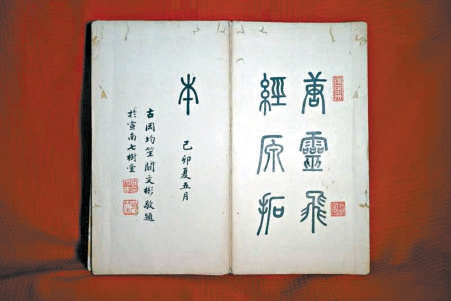 唐靈飛
經原拓
本
己卯夏五月
古岡均笙關文彬敬題
於宣南七樹堂